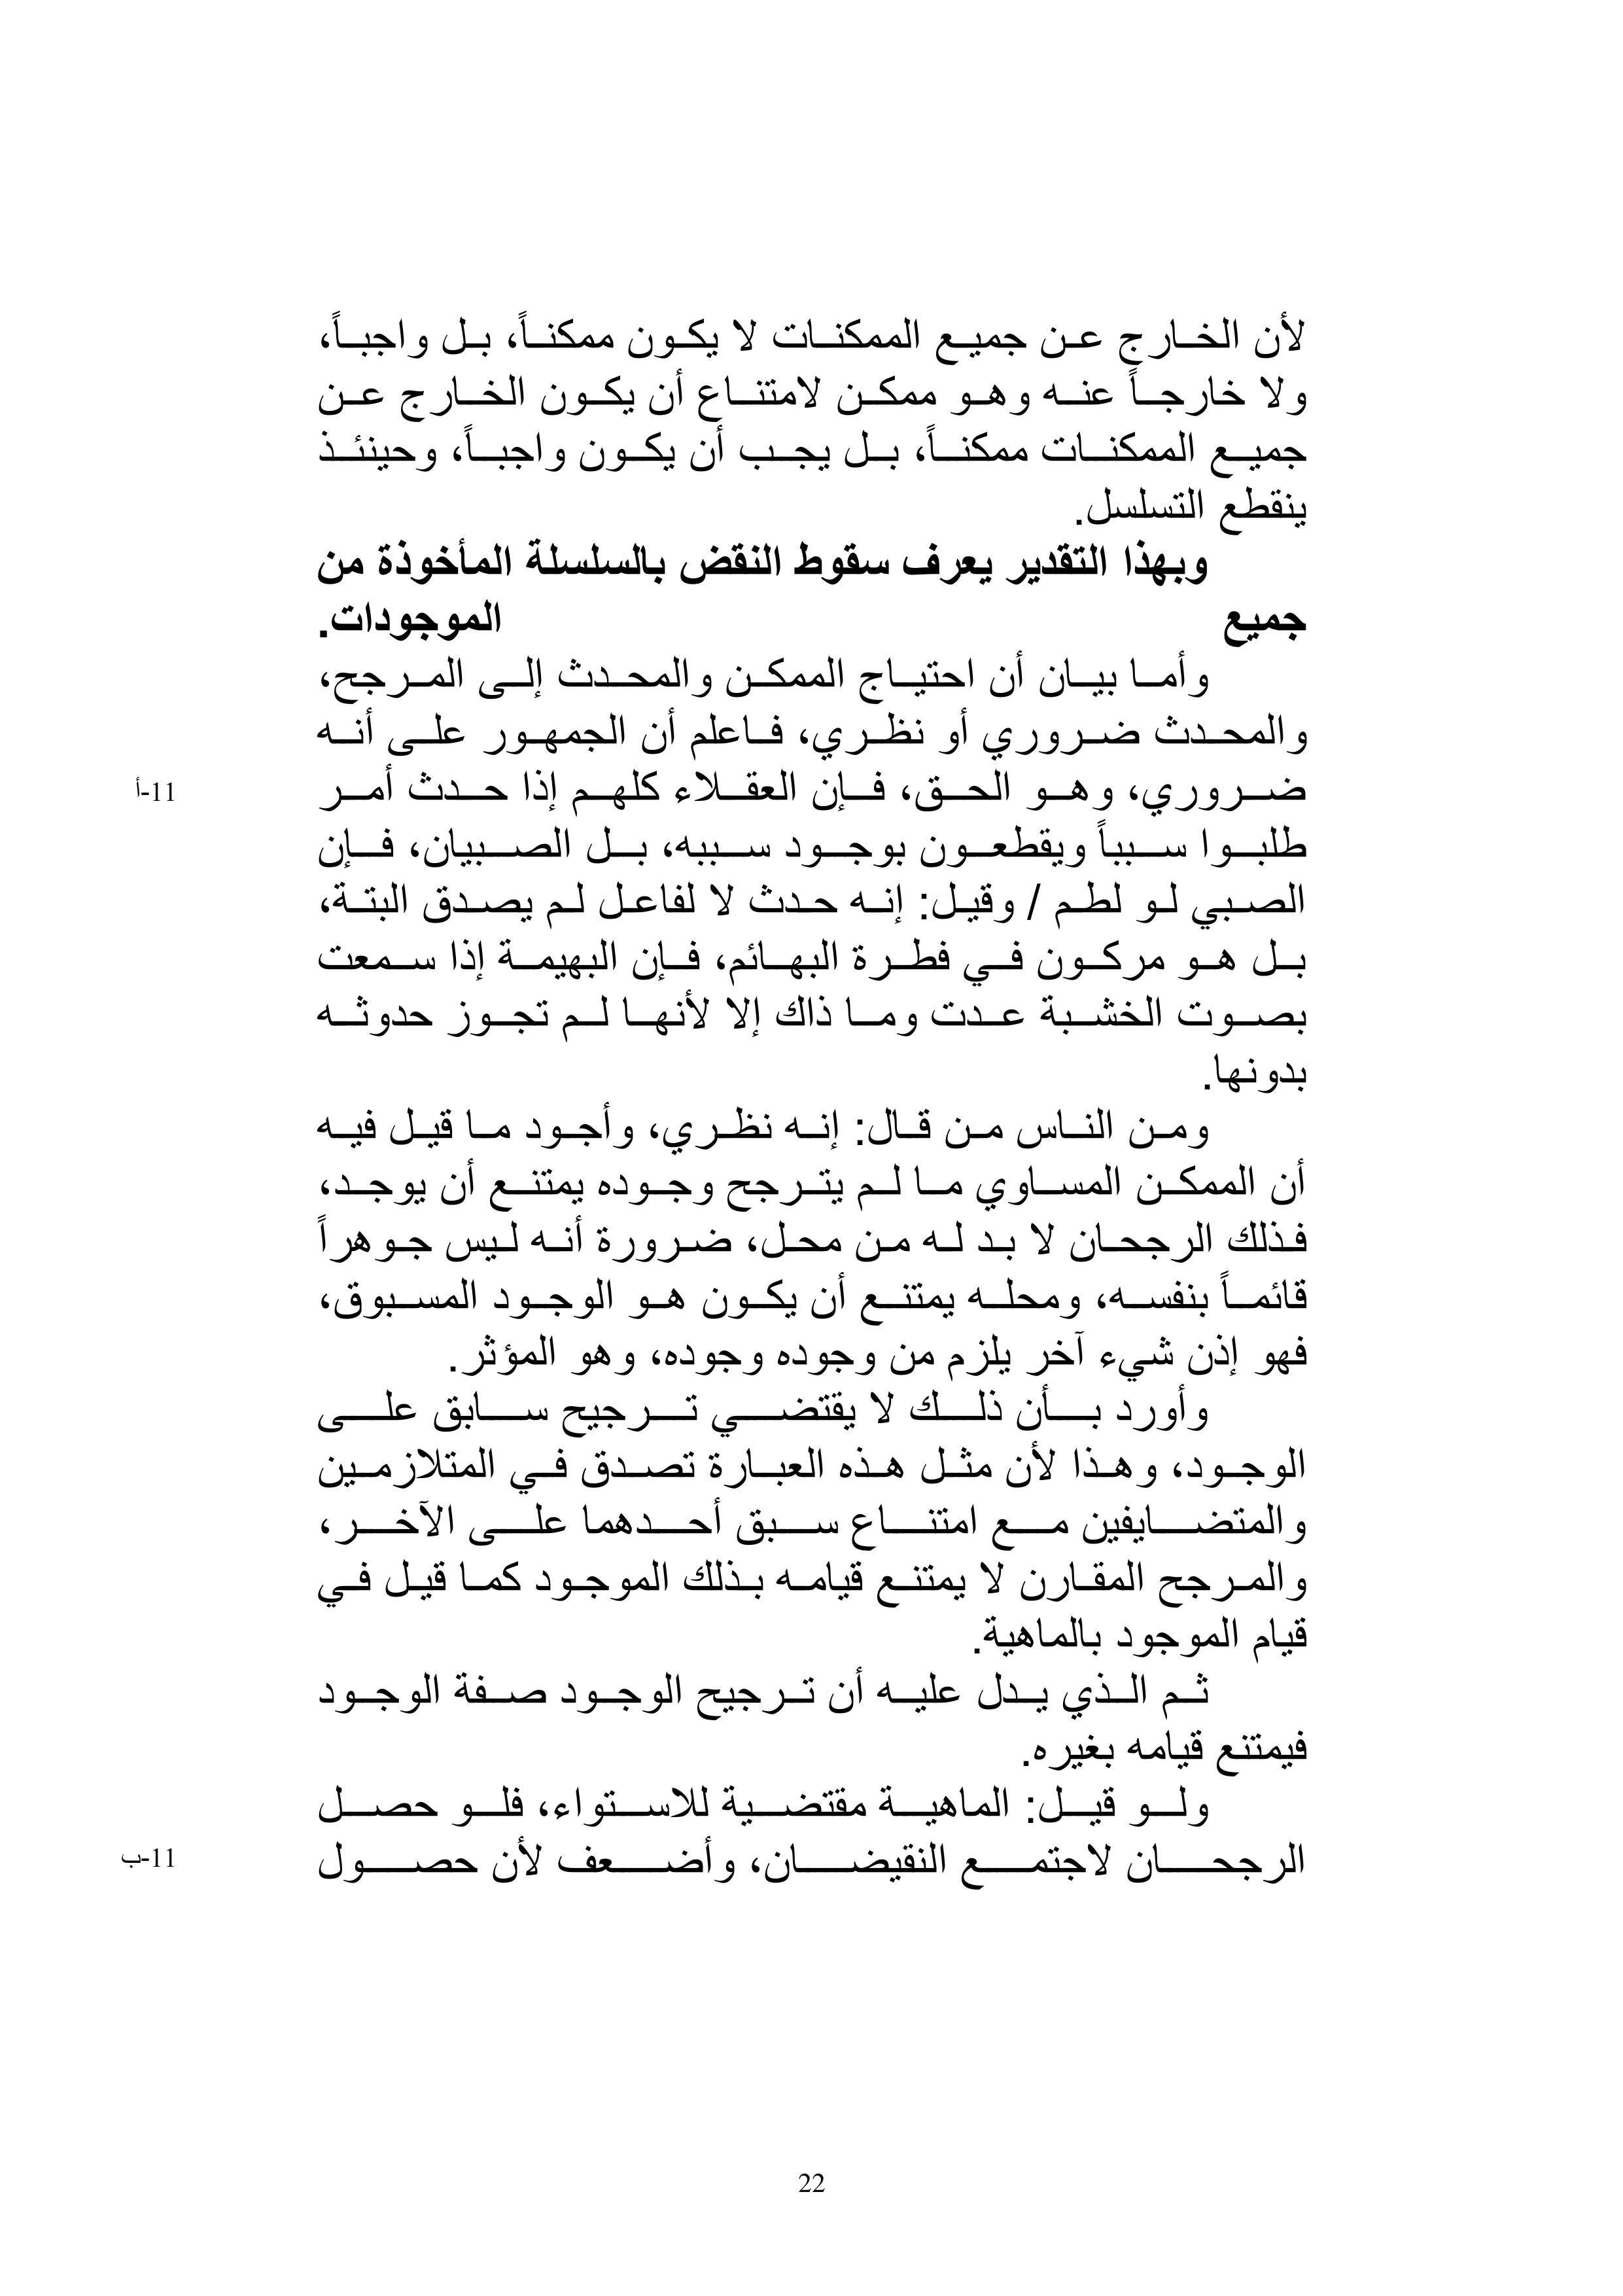 لأن الخارج عن جميع الممكنات لا يكون ممكناً، بل واجباً،
ولا خارجاً عنه وهو ممكن لامتناع أن يكون الخارج عن
جميع الممكنات ممكناً، بل يجب أن يكون واجباً، وحينئذ
ينقطع التسلسل.
وبهذا التقدير يعرف سقوط النقض بالسلسلة المأخوذة من
جميع الموجودات.
وأما بيان أن احتياج الممكن والمحدث إلى المرجح،
والمحدث ضروري أو نظري، فاعلم أن الجمهور على أنه
ضروري، وهو الحق، فإن العقلاء كلهم إذا حدث أمر
11-أ
طلبوا سبباً ويقطعون بوجود سببه، بل الصبيان، فإن
الصبي لو لطم / وقيل: إنه حدث لا لفاعل لم يصدق البتة،
بل هو مركون في فطرة البهائم، فإن البهيمة إذا سمعت
بصوت الخشبة عدت وما ذاك إلا لأنها لم تجوز حدوثه
بدونها.
ومن الناس من قال: إنه نظري، وأجود ما قيل فيه
أن الممكن المساوي ما لم يترجح وجوده يمتنع أن يوجد،
فذلك الرجحان لا بد له من محل، ضرورة أنه ليس جوهراً
قائماً بنفسه، ومحله يمتنع أن يكون هو الوجود المسبوق،
فهو إذن شيء آخر يلزم من وجوده وجوده، وهو المؤثر.
وأورد بأن ذلك لا يقتضي ترجيح سابق على
الوجود، وهذا لأن مثل هذه العبارة تصدق في المتلازمين
والمتضايفين مع امتناع سبق أحدهما على الآخر،
والمرجح المقارن لا يمتنع قيامه بذلك الموجود كما قيل في
قيام الموجود بالماهية.
ثم الذي يدل عليه أن ترجيح الوجود صفة الوجود
فيمتنع قيامه بغيره.
ولو قيل: الماهية مقتضية للاستواء، فلو حصل
الرجحان لاجتمع النقيضان، وأضعف لأن حصول
11-ب
22